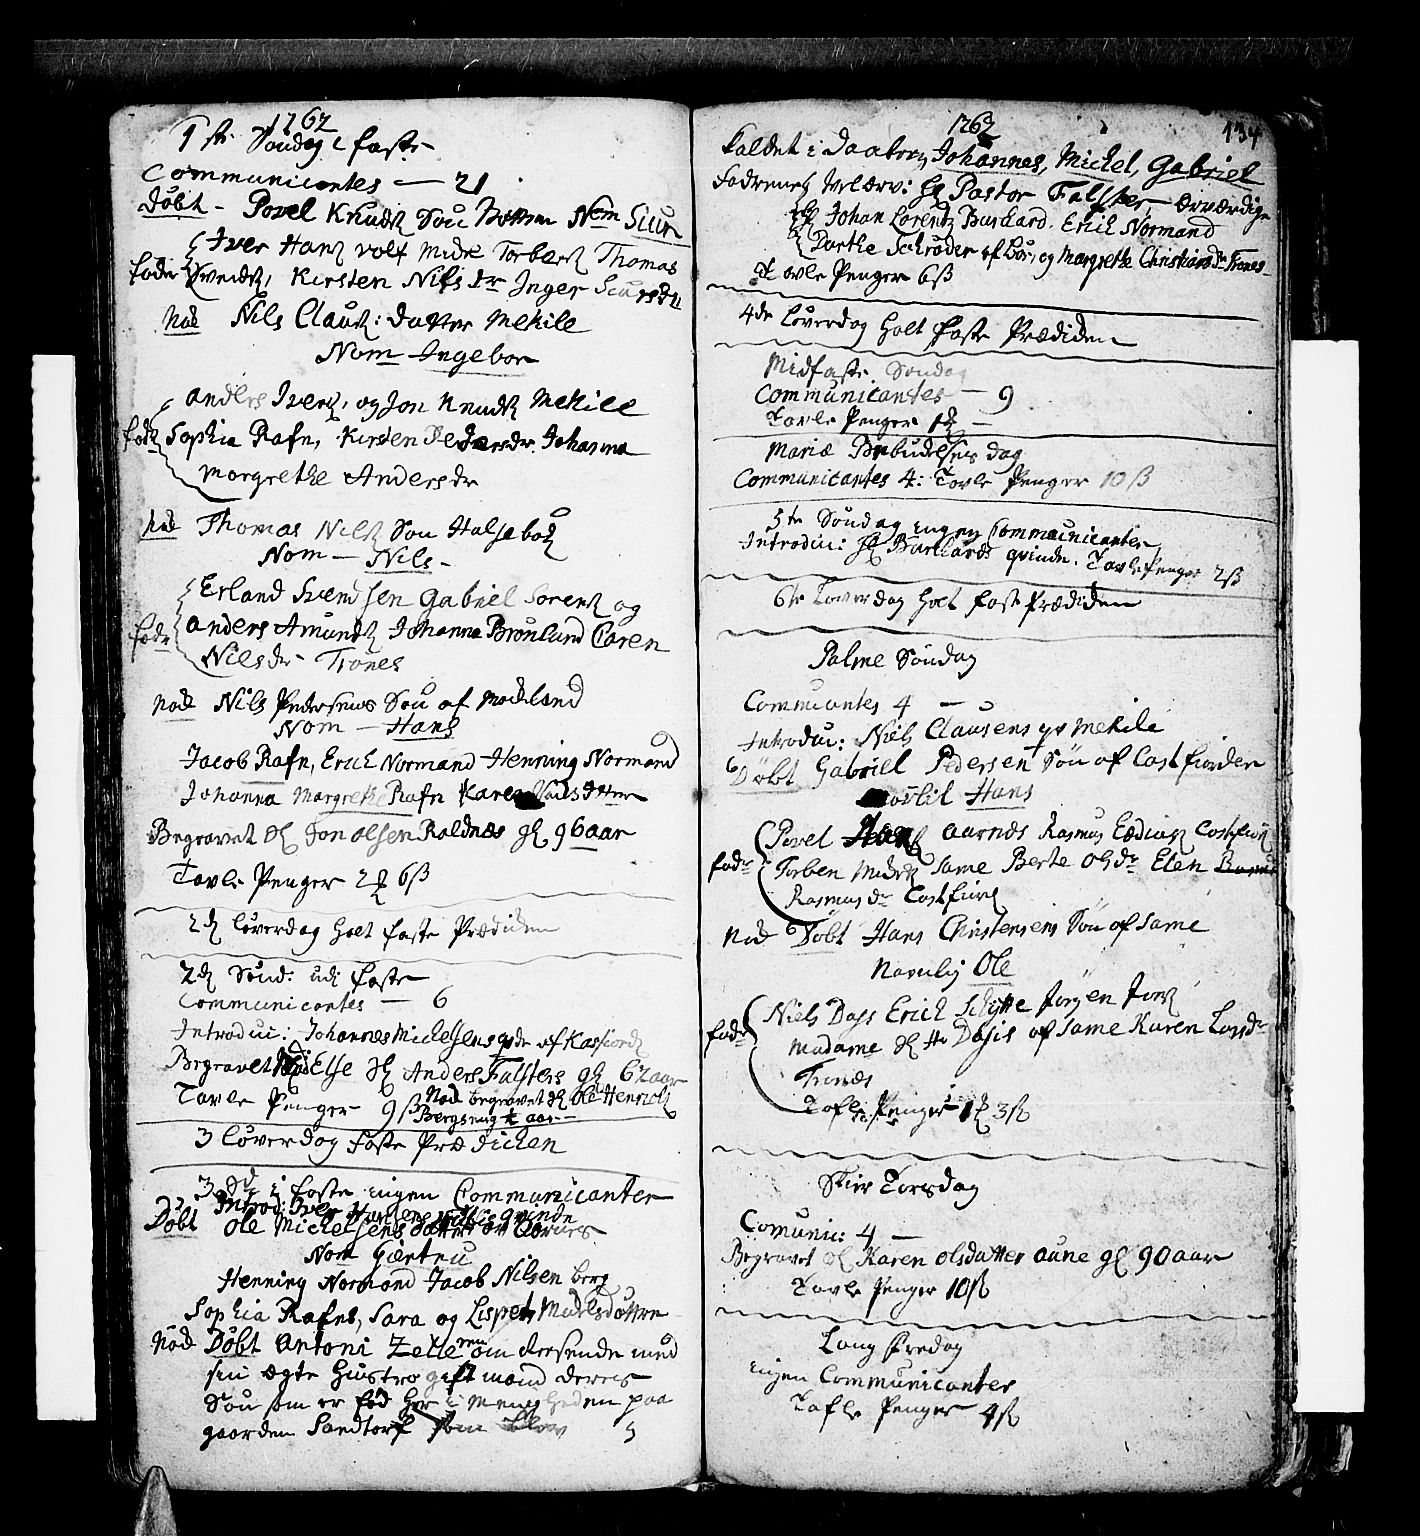 1762
1ste Søndag i faste
Communicantes — 21
Døbt - Povel Knudß Søn Nom Siur
Iver Hanß volf Torberß Thomas
fadr Svendß, Kirsten Nils dr Inger Siursdtr
Nod Nils Clausß: datter Mekile
Nom Ingebor
anders Iverß, og Jon Knudß Mekile
fadr Sophia Rafn, Kirsten Pedersdr Johanna
Margrethe Andersdr
Nod Thomas Nilß Søn Halsebøe
Nom — Nils -
Erland Svendsen Gabriel Sørenß og
fadr anders Amundß Johanna Brønlund Caren
Nilsdr Trones
Nod Nils Pedersens Søn af Modeland
Nom — Hans
Jacob Rafn, Erich Normand Henning Normand
Johanna Margrethe Rafn Karen Datter
Begravet Sl Jon olsen Raldnæs gl 96 aar
Tavle Penger 2 ꝶ 6 ß
2d Løverdag Holt faste Prædiken
2d Sønd: udi faste
Communicantes — 6
Introdui: Johannes Michelsens qde af Kasfiord
Begravet Else Sl Anders Falsters gl 62 aar
Tavle Penger 9 ß Nod begravet Sl Ole Henrichß
Bergseng ½ aar -
3 Løverdag faste Prædichen
3 Sd i faste ingen Communicanter
Introd: Iver Hansens qvinde
Døbt Ole Michelsens datter
Nom Giertru
Henning Normand Jacob Nilsen berg
Sophia Rafns, Sara og Lispeth
Nod Døbt Antoni Zelle om Reisende med
sin ægte Hustro gift mand deres
Søn som er fød her i Menigheden paa
gaarden Sandtorf som blev
1762
134
kaldet i Daaben Johannes, Michel, Gabriel
Fadrene Velærv: Hr Pastor Falster ærværdige
Hr Johan Lorentz Burchard. Erich Normand
Dorthe Schrøder af Bør, og Margrethe Christians dr Trones
Tavle Penger 6 ß
4de Løverdag Holt Faste Prædiken
Midfaste Søndag
Communicantes — 9
Tavle Penger 1 ꝶ —
Mariæ Bebudelses dag
Communicantes 4: Tavle Penger 10 ß
5te Søndag ingen Communicanter
Introdui: Hr Burchards qvinde. Tavle Penger 2 ß
6te Løverdag Holt faste Prædiken
Palme Søndag
Communantes 4 —
Introdui: Niels Clausens qv Mekile
Døbt Gabriel Pedersen Søn af Costfiorden
Hans
Povel Hanß aarnæs Rasmus Costfiord
fadr Torben Same Berte Olsdr Elen
Rasmusdr Costfiord
Nod Døbt Hans Christensens Søn af Same
Navnlig Ole
Niels Dass Erich Jørgen
fadr Madame Sl Hr Dasis af Same Karen Larsdr
Trones
Tafle Penger 1 ꝶ 3 ß
Skier Torsdag
Comunic: 4 —
Begravet Sl Karen Olsdatter Aune gl 90 aar
Tavle Penger 10 ß
Lang Fredag
ingen Communicanter
Tafle Penger 4 ß